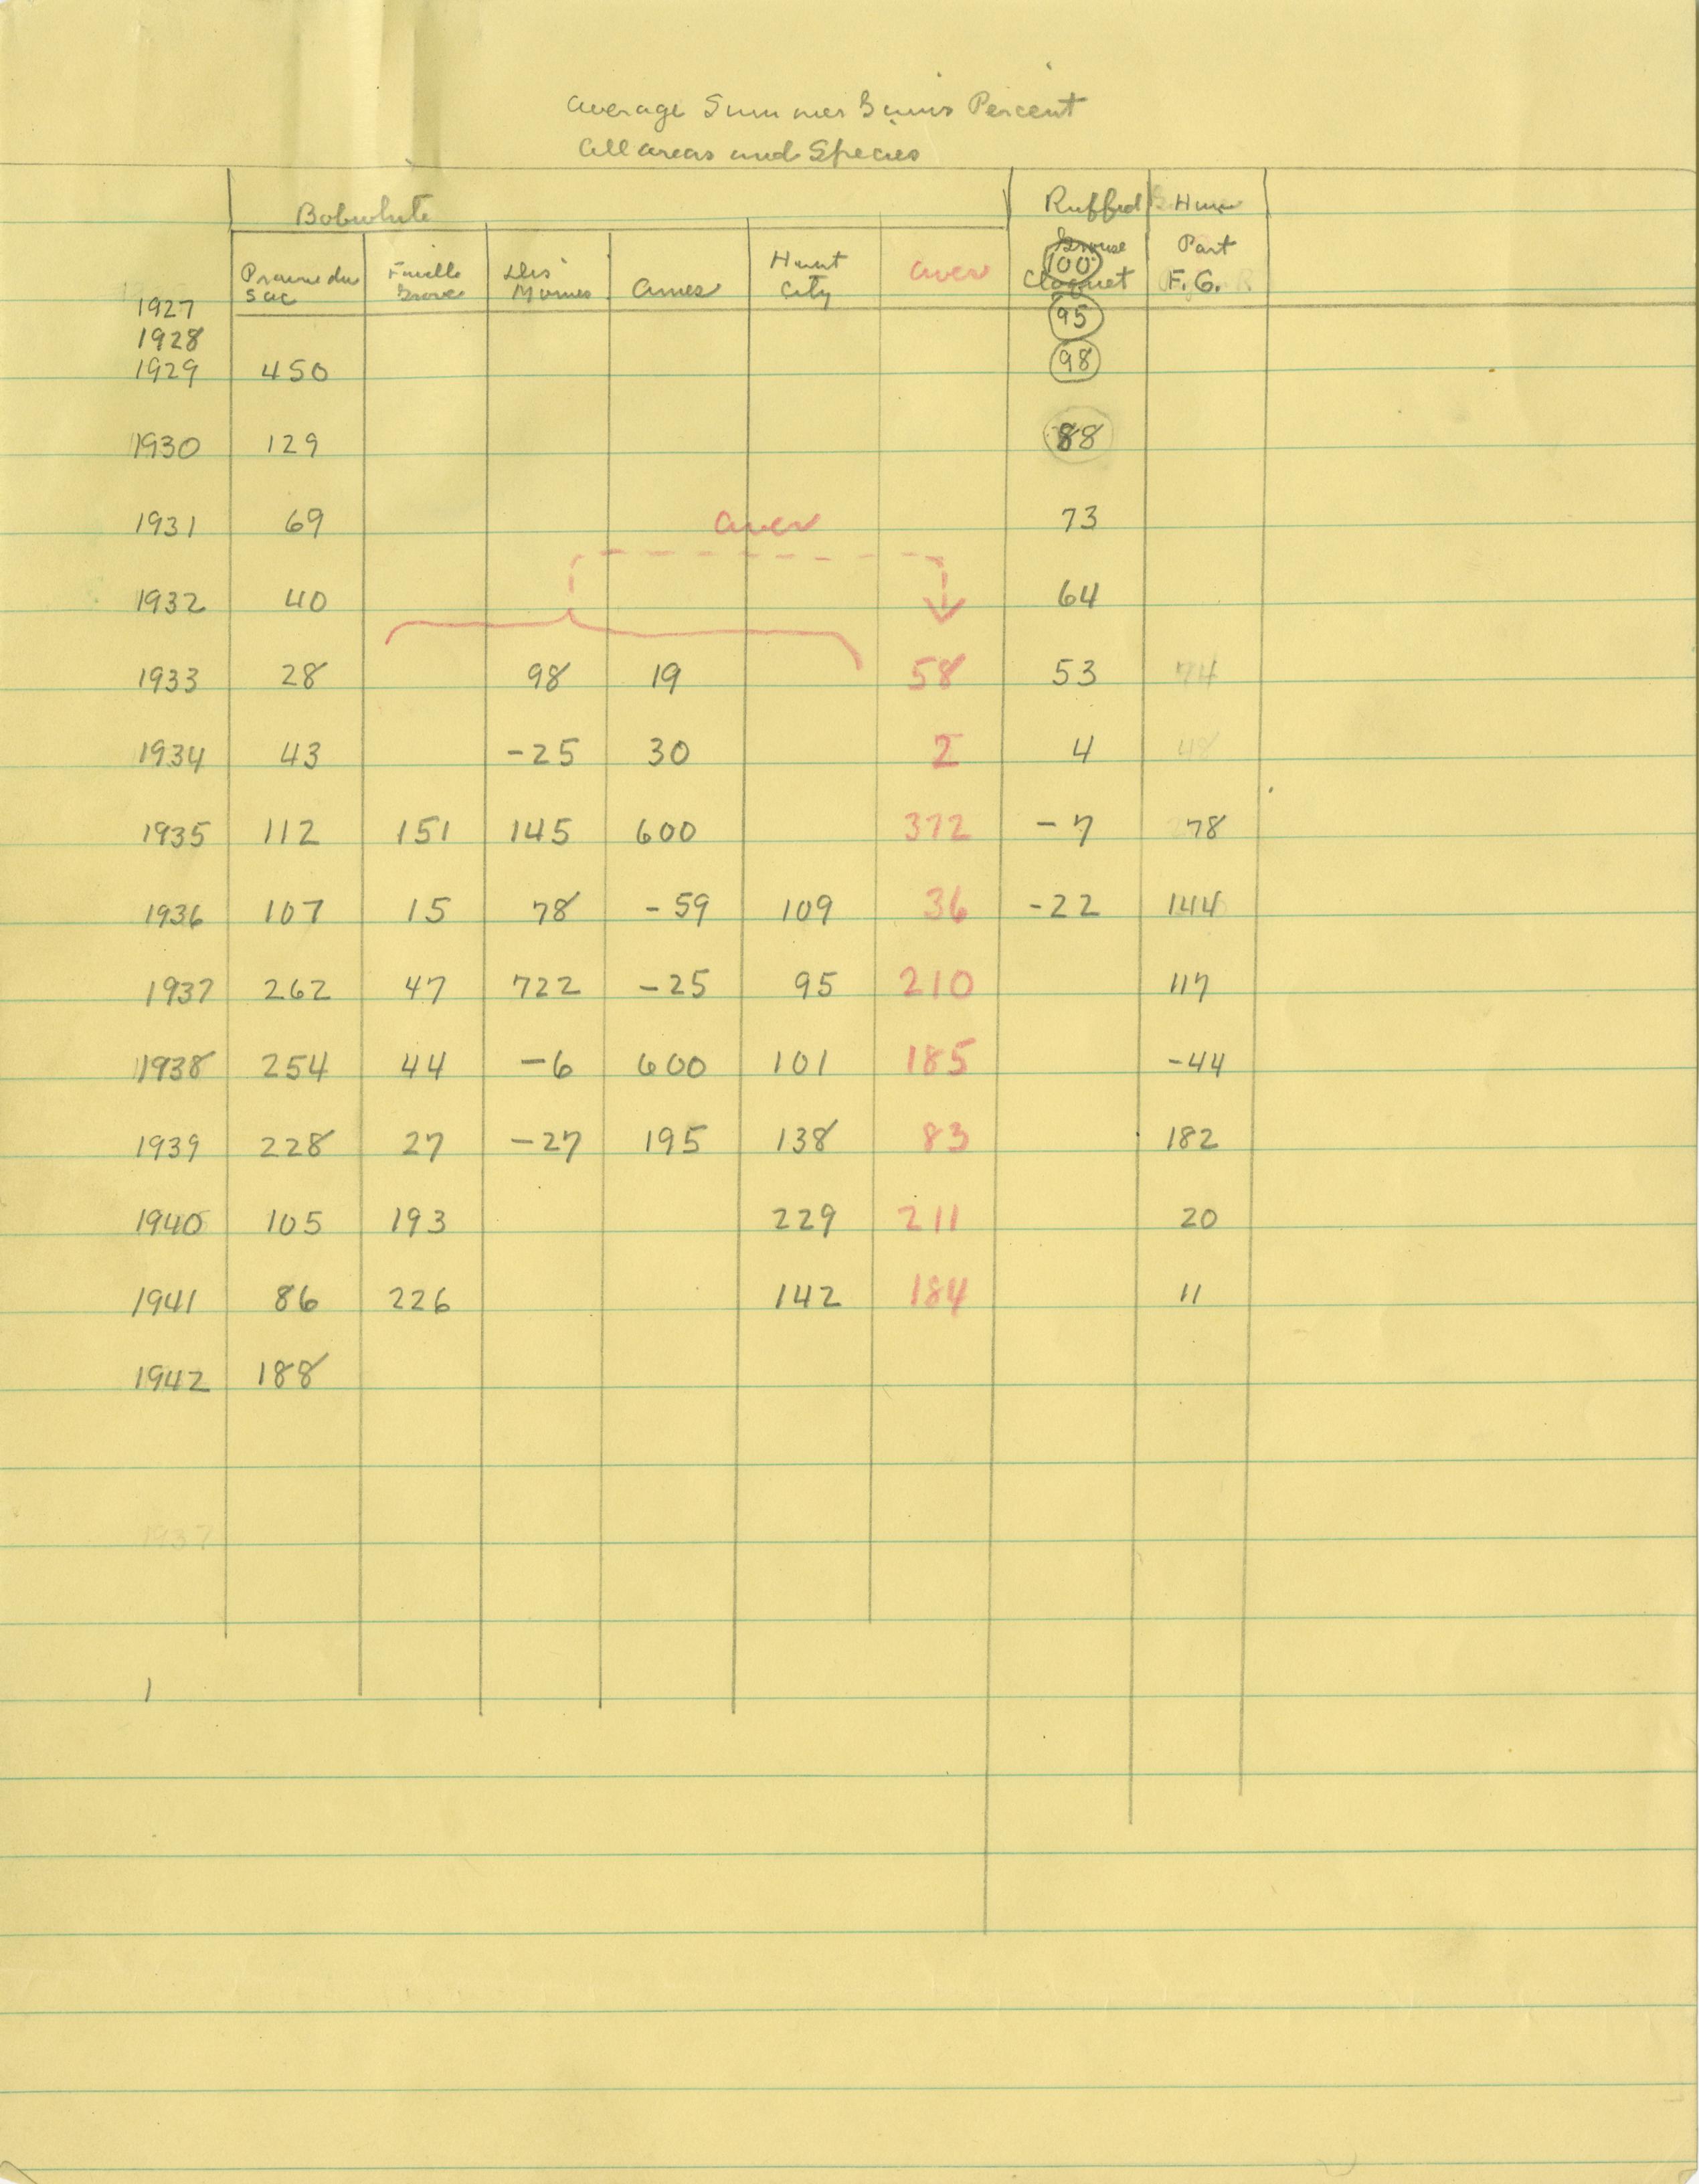 Average Summer Gains Percent
All areas and Species
Bobwhite Ruffed Hun
Prairie du Faville Des Hunt aver Grouse Part
Sac Grove Moines Ames City Cloquet F.G.
1927 100
1928 95
1929 450 98
1930 129 88
1931 69 aver 73
1932 40 64
1933 28 98 19 58 53 74
1934 43 -25 30 2 4 48
1935 112 151 145 600 372 -7 78
1936 107 15 78 -59 109 36 -22 144
1937 262 47 722 -25 95 210 117
1938 254 44 -6 600 101 185 -44
1939 228 27 -27 195 138 83 182
1940 105 193 229 211 20
1941 86 226 142 184 11
1942 188
1937
1